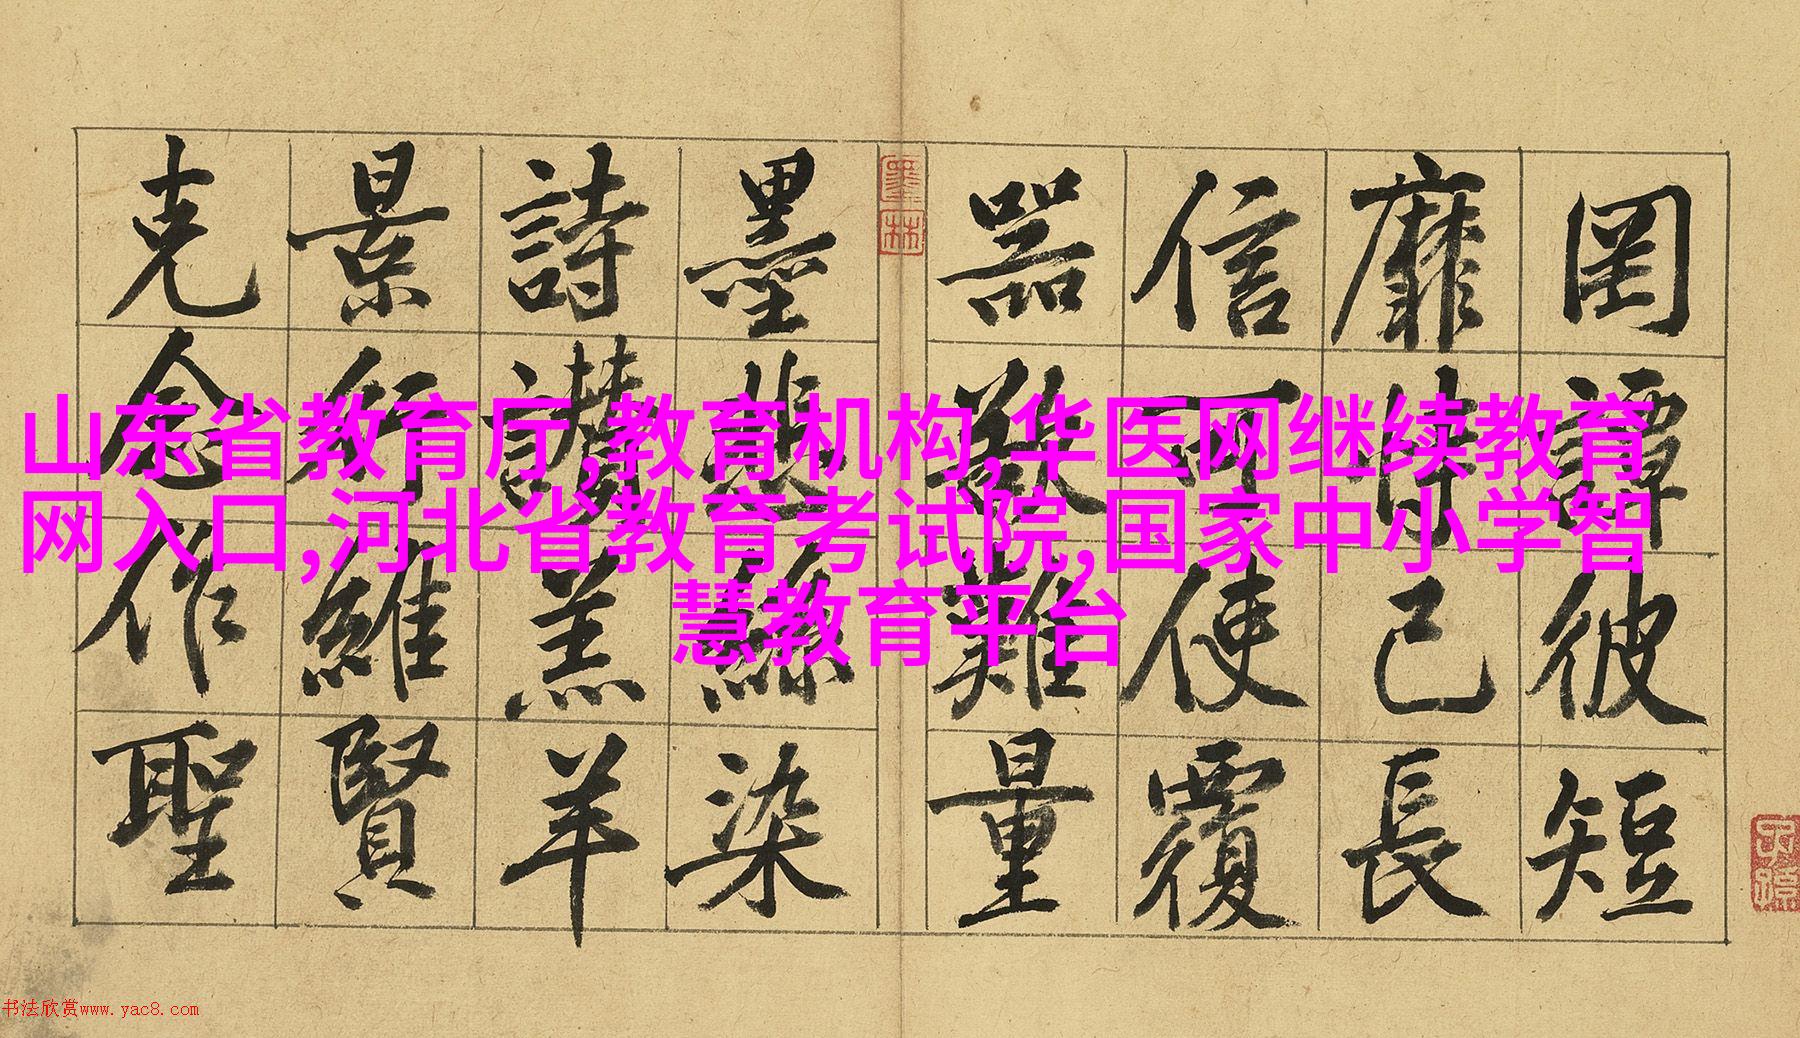 罔譚彼短
靡恃己長
信可使覆
器欲難量
墨林
墨悲絲染
詩讚羔羊
景行維賢
克念作聖
山东省教育厅,教育机构,华医网继续教育
网入口,河北省教育考试院,国家中小学智
慧教育平台
书法欣赏www.yac8.com